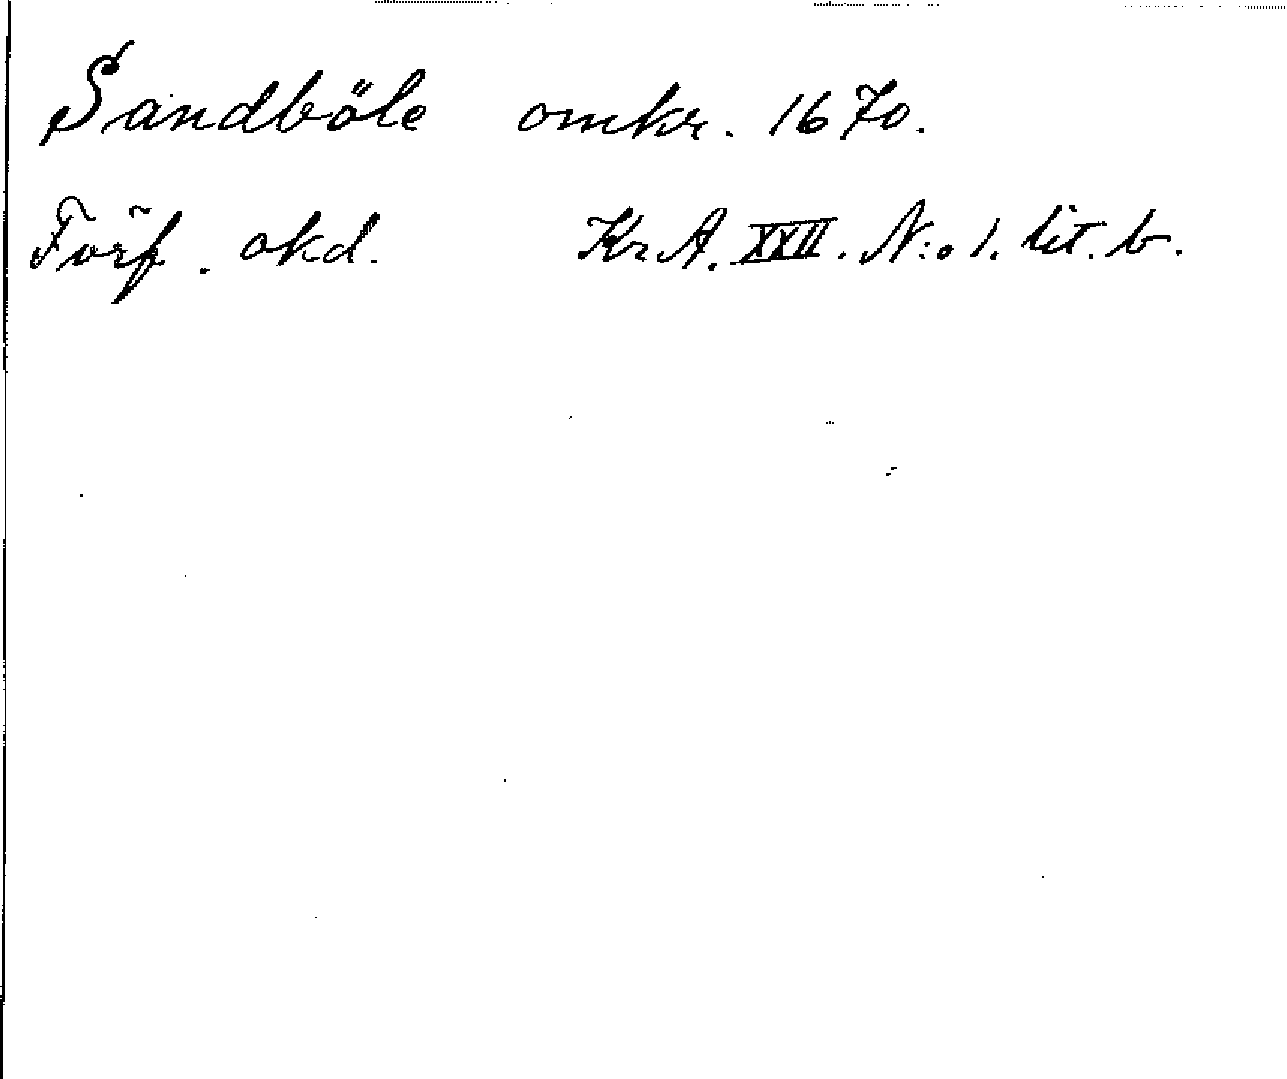 Sandböle omkr. 1670.
Förf. okd. Kr A. XXII. N:o 1. lit. b.